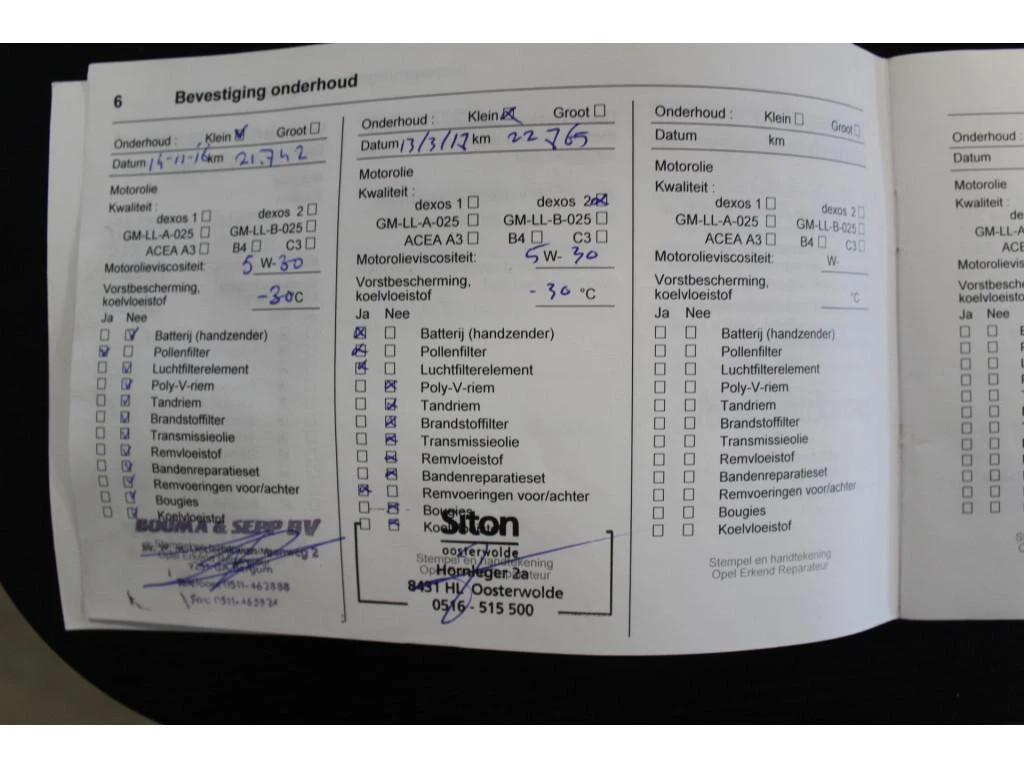 6 Bevestiging onderhoud
Onderhoud : Klein Groot
Datum 14-11-16 km 21.742
Motorolie
Kwaliteit :
dexos 1 dexos 2
GM-LL-A-025 GM-LL-B-025
ACEA A3 B4 C3
Motorolieviscositeit: 5 W- 30
Vorstbescherming,
koelvloeistof -30°C
Ja Nee
Batterij (handzender)
Pollenfilter
Luchtfilterelement
Poly-V-riem
Tandriem
Brandstoffilter
Transmissieolie
Remvloeistof
Bandenreparatieset
Remvoeringen voor/achter
Bougies
Koelvloeistof
BOUMA & SEPP BV
0511-462888
Onderhoud : Klein Groot
Datum 13/3/17 km 22765
Motorolie
Kwaliteit :
dexos 1 dexos 2
GM-LL-A-025 GM-LL-B-025
ACEA A3 B4 C3
Motorolieviscositeit: 5 W- 30
Vorstbescherming,
koelvloeistof - 30 °C
Ja Nee
Batterij (handzender)
Pollenfilter
Luchtfilterelement
Poly-V-riem
Tandriem
Brandstoffilter
Transmissieolie
Remvloeistof
Bandenreparatieset
Remvoeringen voor/achter
Bougies
Siton
oosterwolde
Stempel en handtekening
Hornleger 2a
8431 HL Oosterwolde
0516 - 515 500
Onderhoud : Klein Groot
Datum km
Motorolie
Kwaliteit :
dexos 1 dexos 2
GM-LL-A-025 GM-LL-B-025
ACEA A3 B4 C3
Motorolieviscositeit: W-
Vorstbescherming,
koelvloeistof °C
Ja Nee
Batterij (handzender)
Pollenfilter
Luchtfilterelement
Poly-V-riem
Tandriem
Brandstoffilter
Transmissieolie
Remvloeistof
Bandenreparatieset
Remvoeringen voor/achter
Bougies
Koelvloeistof
Stempel en handtekening
Opel Erkend Reparateur
Onderhoud :
Datum
Motorolie
Kwaliteit :
Ja Nee